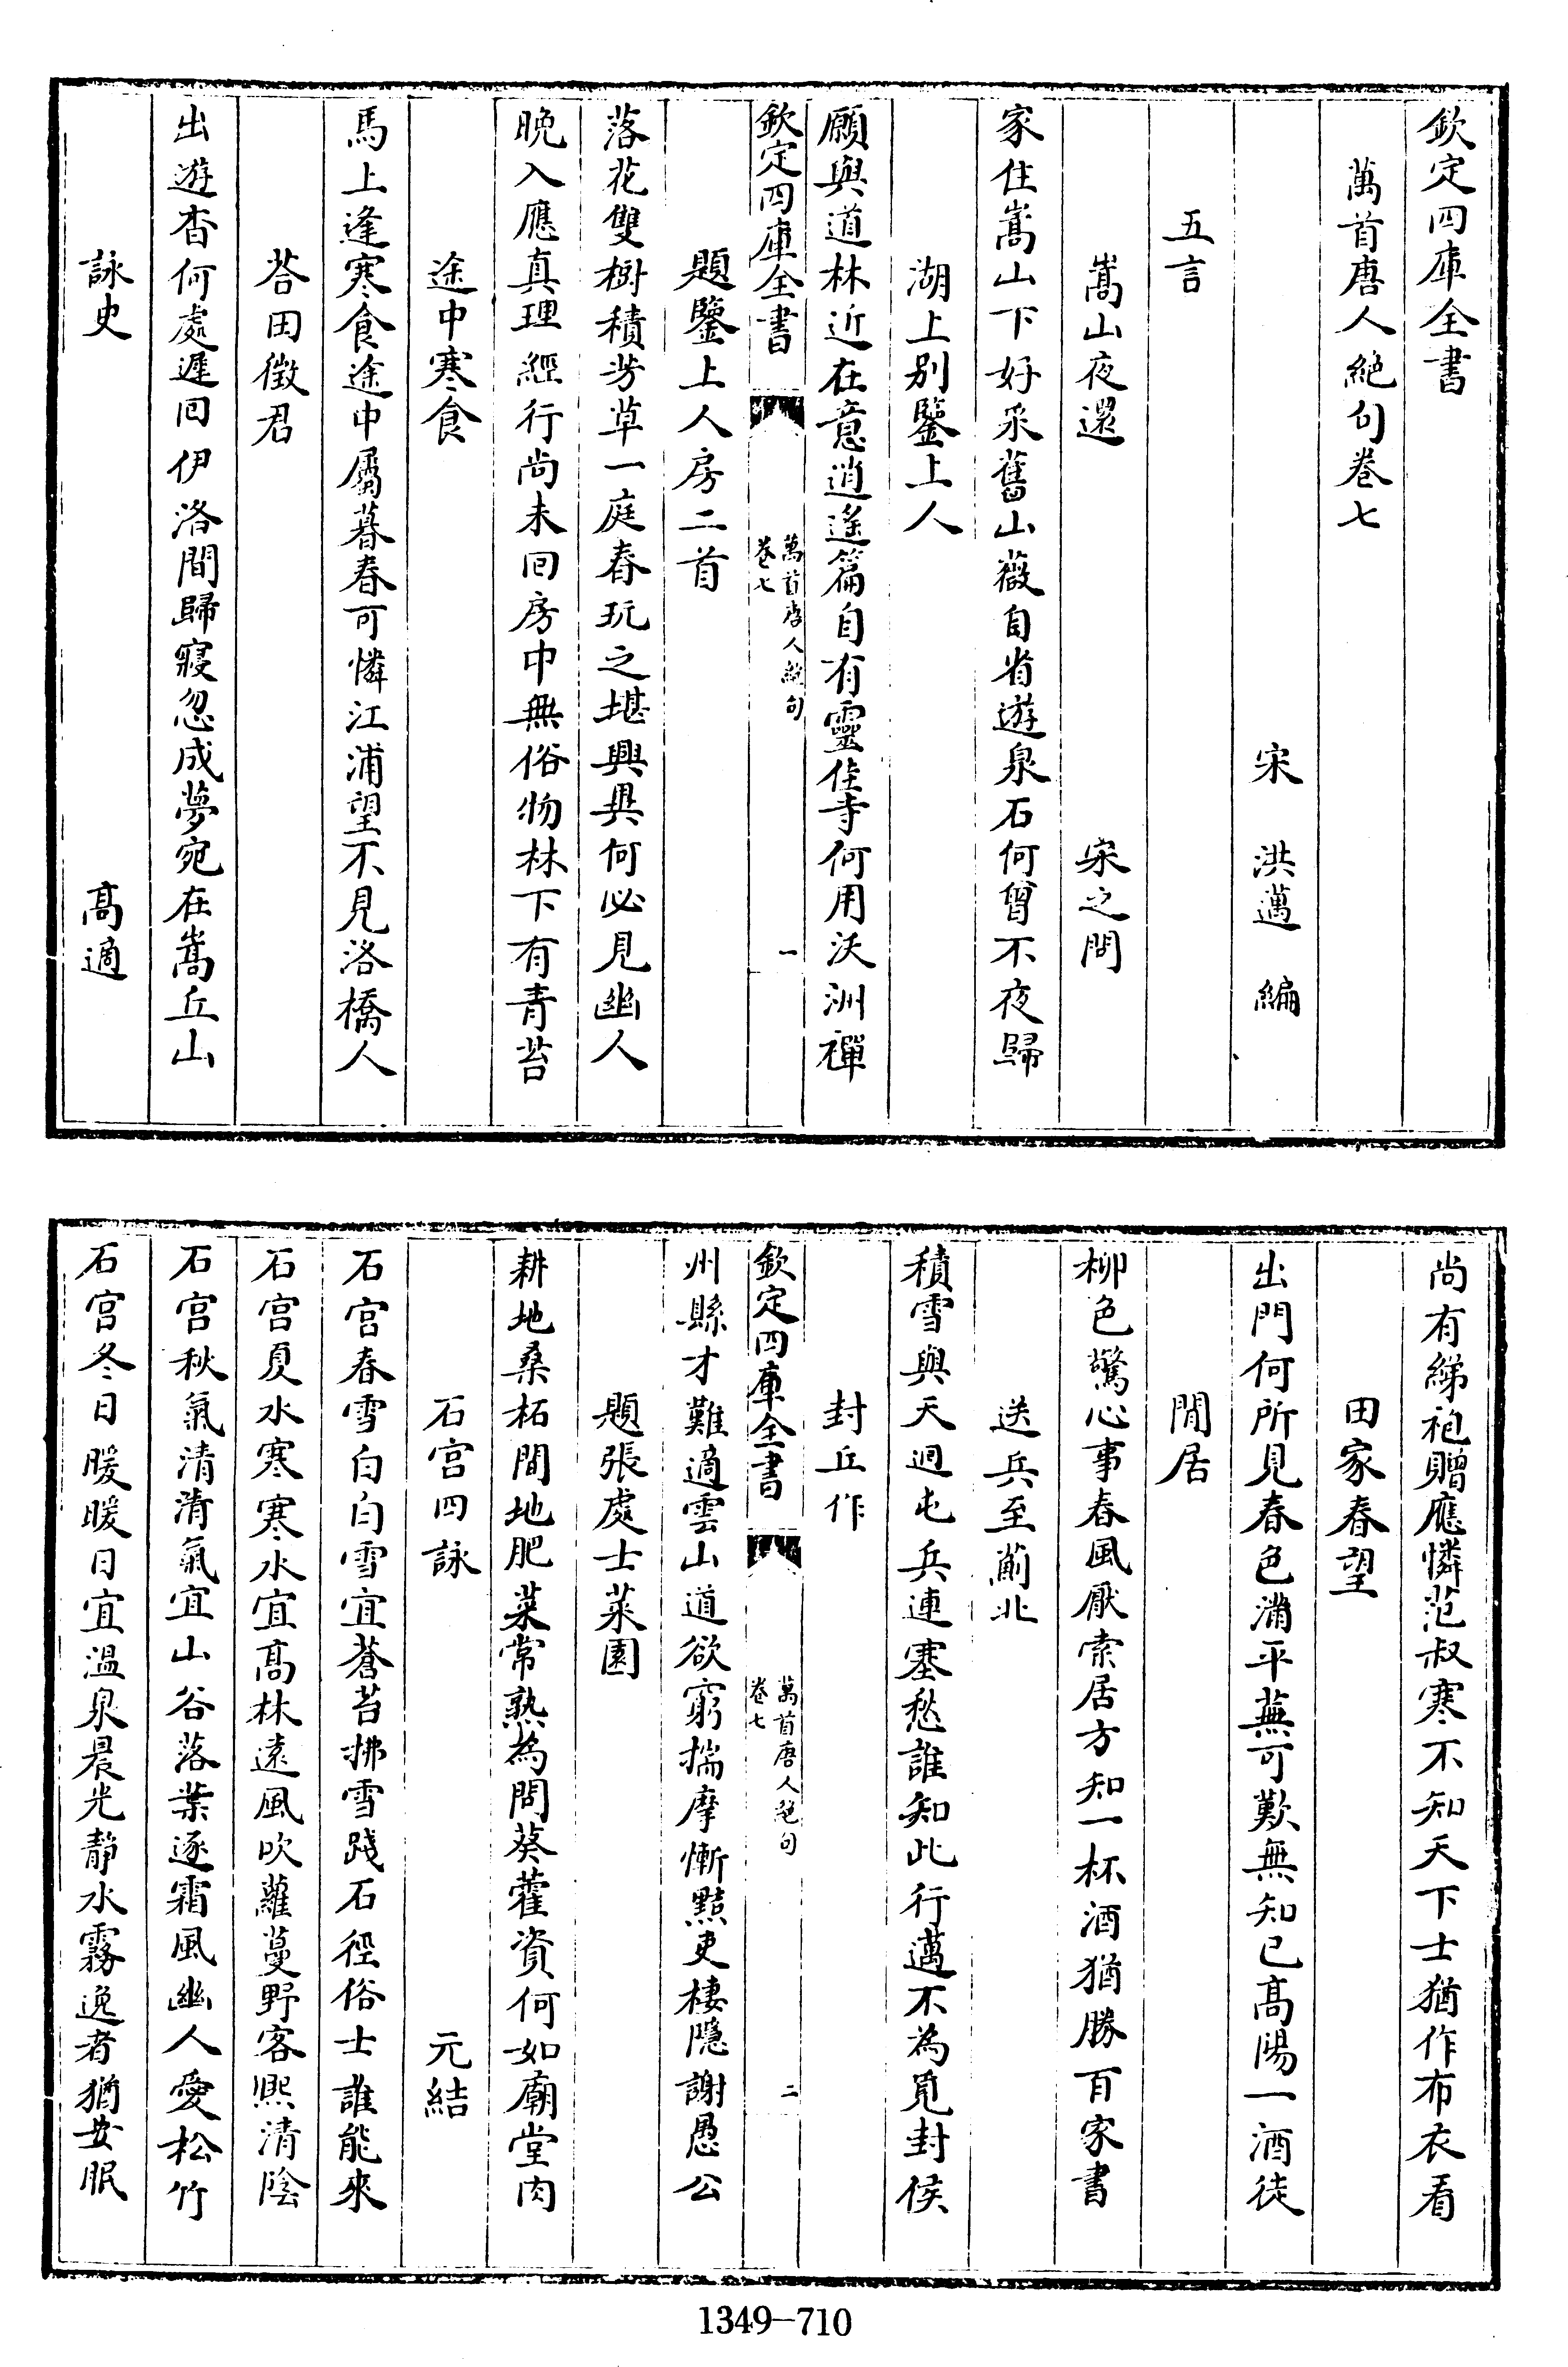 欽定四庫全書
萬首唐人絕句卷七
宋 洪邁 編
五言
嵩山夜還 宋之問
家住嵩山下好采舊山薇自省遊泉石何曾不夜歸
湖上別鑒上人
願與道林近在意逍遙篇自有靈佳寺何用沃洲禪
欽定四庫全書
萬首唐人絕句
卷七
一
題鑒上人房二首
落花雙樹積芳草一庭春玩之堪興異何必見幽人
晚入應真理經行尚未回房中無俗物林下有青苔
途中寒食
馬上逢寒食途中屬暮春可憐江浦望不見洛橋人
荅田徵君
出遊杳何處遲回伊洛間歸寢忽成夢宛在嵩丘山
詠史 高適
尚有綈袍贈應憐范叔寒不知天下士猶作布衣看
田家春望
出門何所見春色滿平蕪可歎無知已高陽一酒徒
閒居
柳色驚心事春風厭索居方知一杯酒猶勝百家書
送兵至薊北
積雪與天迥屯兵連塞愁誰知此行邁不為覓封侯
封丘作
欽定四庫全書
萬首唐人絕句
卷七
二
州縣才難適雲山道欲窮揣摩慚黠吏棲隱謝愚公
題張處士菜園
耕地桑柘間地肥菜常熟為問葵藿資何如廟堂肉
石宮四詠 元結
石宮春雪白白雪宜蒼苔拂雪踐石徑俗士誰能來
石宮夏水寒寒水宜高林遠風吹蘿蔓野客熙清陰
石宮秋氣清清氣宜山谷落葉逐霜風幽人愛松竹
石宮冬日暖暖日宜溫泉晨光靜水霧逸者猶安眠
1349-710